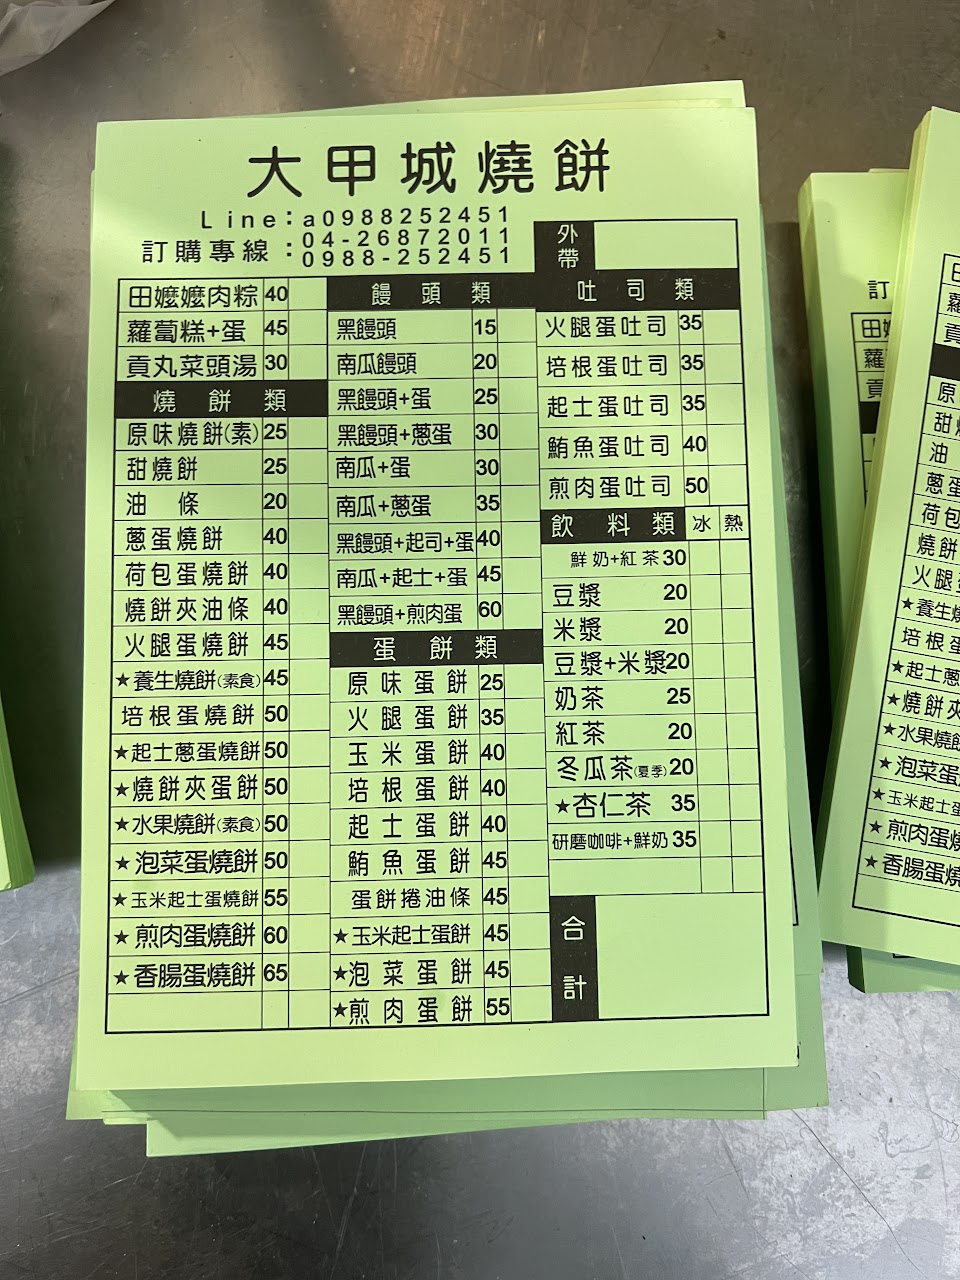 大甲城燒餅
Line:a0988252451
訂購專線:04-26872011
0988-252451
外帶
田嬤嬤肉粽 40
蘿蔔糕+蛋 45
貢丸菜頭湯 30
燒餅類
原味燒餅(素) 25
甜燒餅 25
油條 20
蔥蛋燒餅 40
荷包蛋燒餅 40
燒餅夾油條 40
火腿蛋燒餅 45
★養生燒餅(素食) 45
培根蛋燒餅 50
★起士蔥蛋燒餅 50
★燒餅夾蛋餅 50
★水果燒餅(素食) 50
★泡菜蛋燒餅 50
★玉米起士蛋燒餅 55
★煎肉蛋燒餅 60
★香腸蛋燒餅 65
饅頭類
黑饅頭 15
南瓜饅頭 20
黑饅頭+蛋 25
黑饅頭+蔥蛋 30
南瓜+蛋 30
南瓜+蔥蛋 35
黑饅頭+起司+蛋 40
南瓜+起士+蛋 45
黑饅頭+煎肉蛋 60
蛋餅類
原味蛋餅 25
火腿蛋餅 35
玉米蛋餅 40
培根蛋餅 40
起士蛋餅 40
鮪魚蛋餅 45
蛋餅捲油條 45
★玉米起士蛋餅 45
★泡菜蛋餅 45
★煎肉蛋餅 55
吐司類
火腿蛋吐司 35
培根蛋吐司 35
起士蛋吐司 35
鮪魚蛋吐司 40
煎肉蛋吐司 50
飲料類 冰 熱
鮮奶+紅茶 30
豆漿 20
米漿 20
豆漿+米漿 20
奶茶 25
紅茶 20
冬瓜茶(夏季) 20
★杏仁茶 35
研磨咖啡+鮮奶 35
合計
訂
田
蘿
貢
原
甜燒
油
蔥蛋
荷包
燒餅
火腿
★養生燒
培根蛋
★起士蔥
★燒餅夾
★水果燒餅
★泡菜蛋
★玉米起士蛋
★煎肉蛋燒
★香腸蛋燒